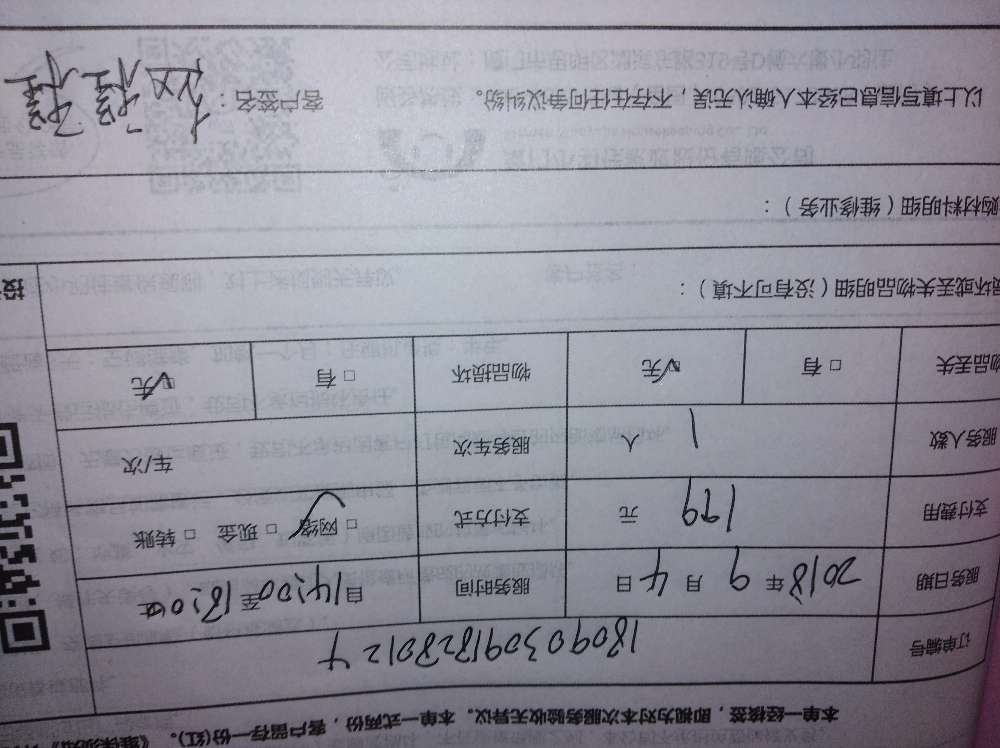 本单一经核签，即视为对本次服务验收无异议。本单一式两份，客户留存一份(红)。
订单编号 180903091828012 4
服务日期 2018年9月4日 服务时间 自14:00至18:00止
支付费用 199 元 支付方式 □网络 □现金 □转账
服务人数 1 人 服务车次 车/次
物品丢失 □有 □无 物品损坏 □有 □无
损坏或丢失物品明细（没有可不填）：
购材料明细（维修业务）：
以上填写信息已经本人确认无误，不存在任何争议纠纷。 客户签名：